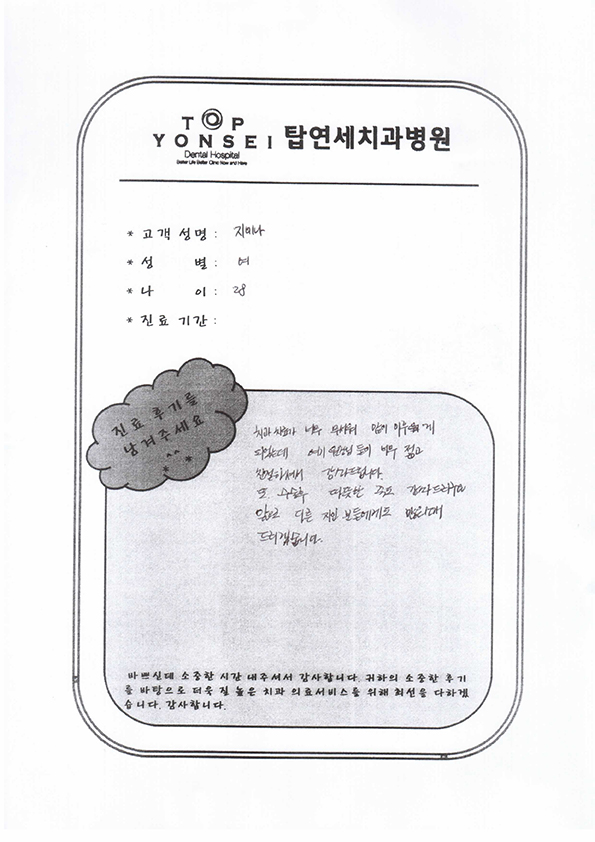 TOP
YONSEI 탑연세치과병원
Dental Hospital
Better Life Better Clinic Now and Here
* 고객 성명 : 지미나
* 성 별 : 여
* 나 이 : 28
* 진료 기간 :
진료 후기를
남겨주세요
^^
* *
치과 치료가 너무 무서워 맘이
되었는데 너무 젊고
친절하셔서 감사드립니다.
또 따뜻한 감사드리구요
다른 지인 분들에게도
드리겠습니다.
바쁘신데 소중한 시간 내주셔서 감사합니다. 귀하의 소중한 후기
를 바탕으로 더욱 질 높은 치과 의료서비스를 위해 최선을 다하겠
습니다. 감사합니다.